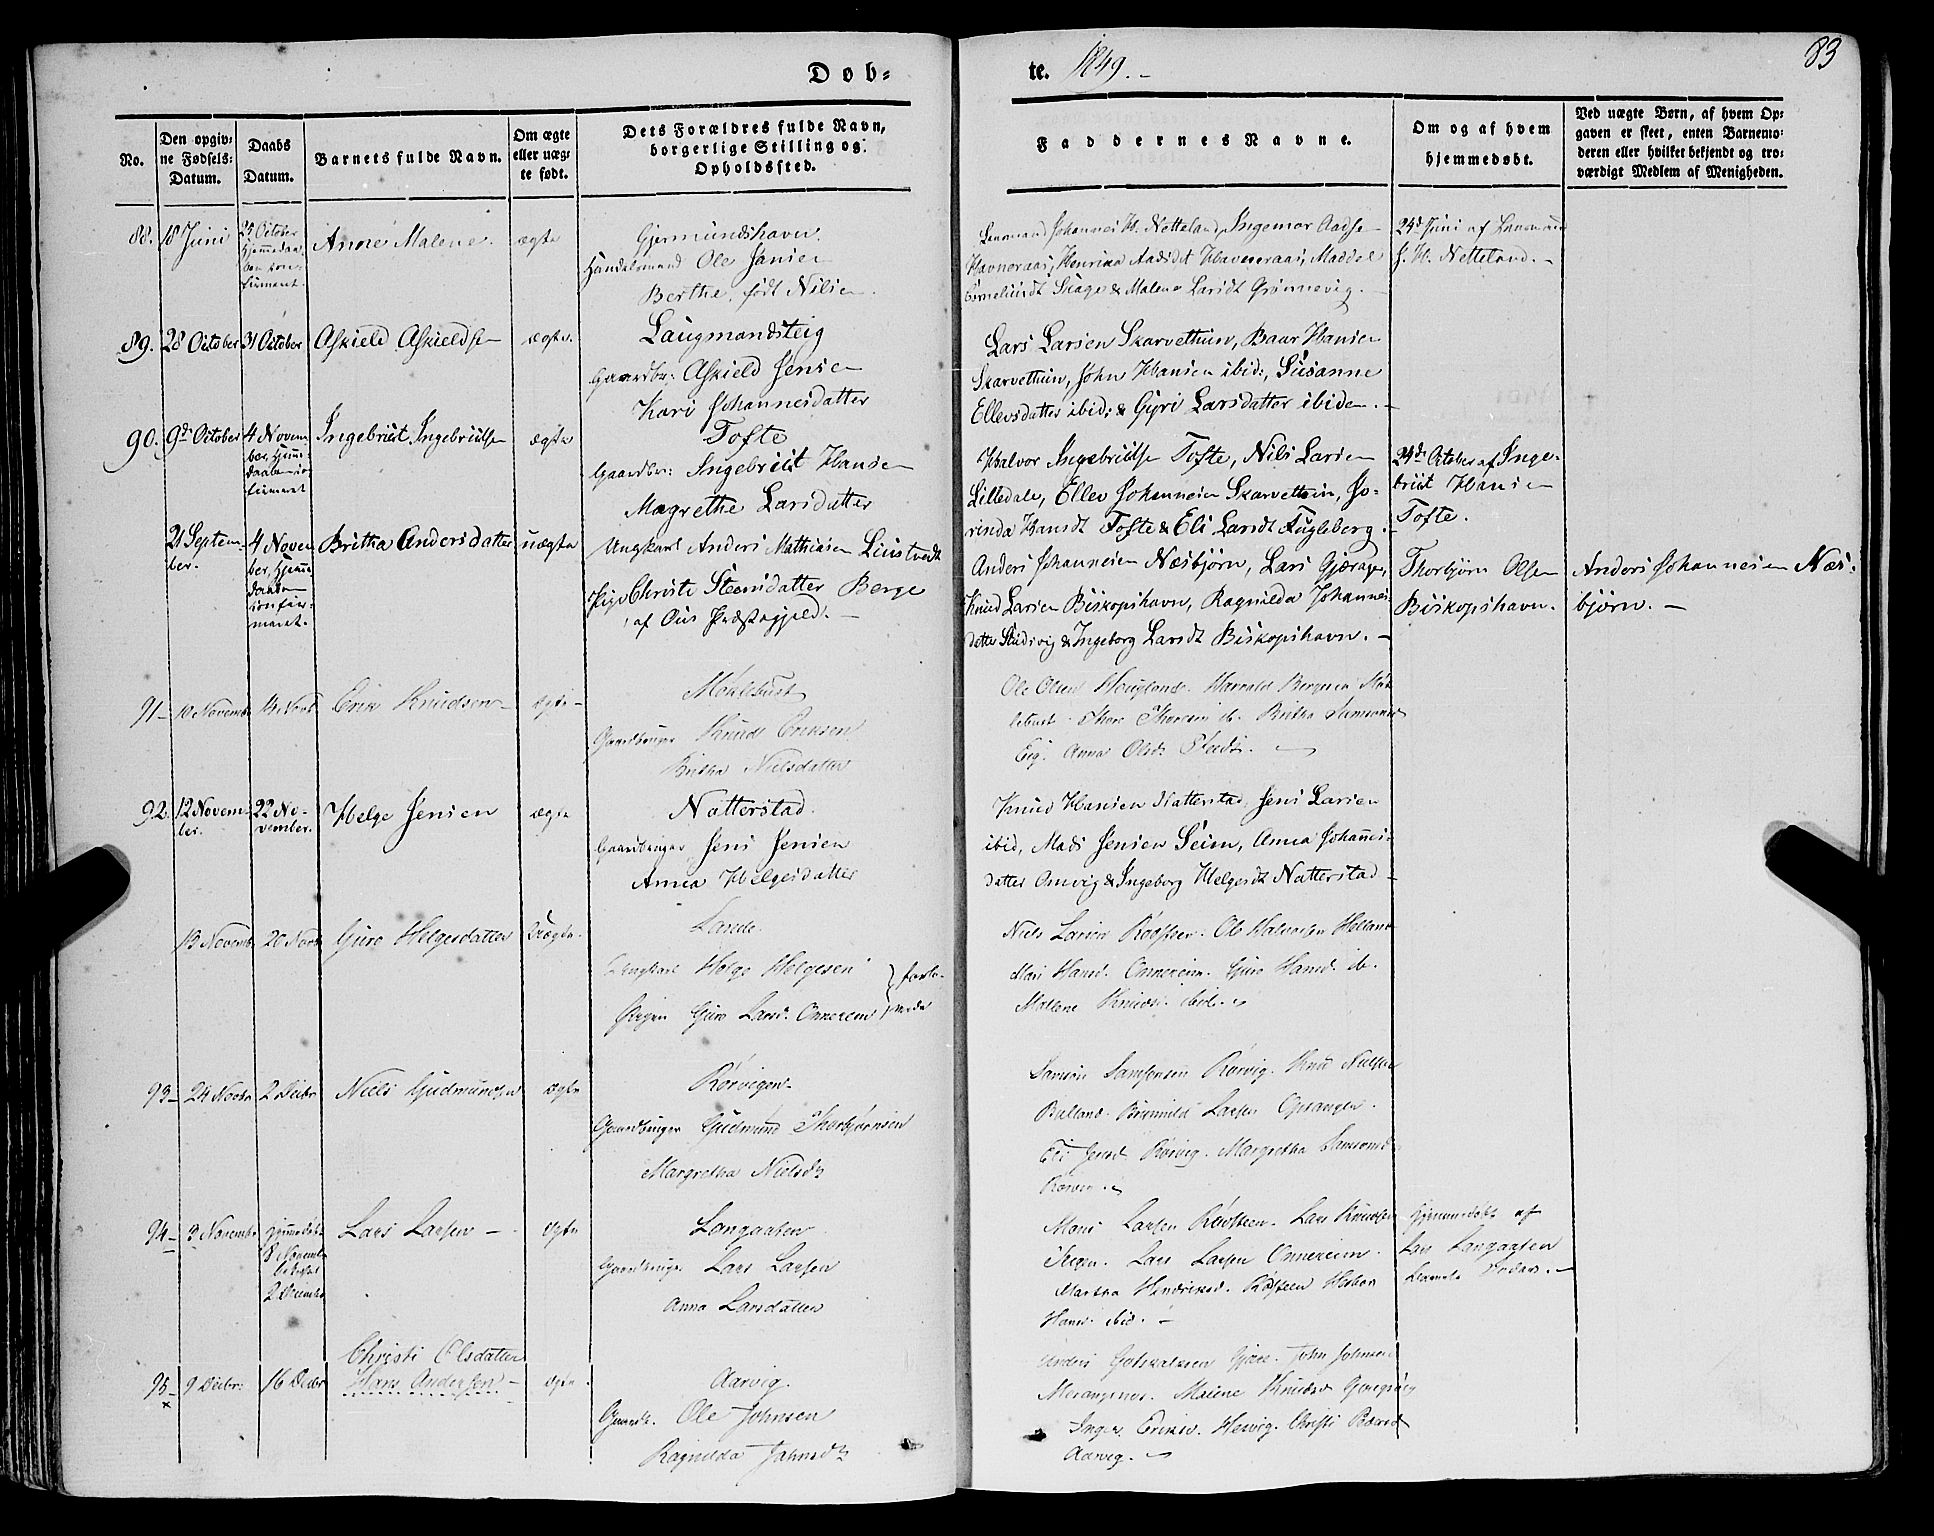 Døb=
te. 1849.-
83
No.
Den opgiv=
ne Fødsels=
Datum.
Daabs
Datum.
Barnets fulde Navn.
Om ægte
eller uæg=
te født.
Dets Forældres fulde Navn,
borgerlige Stilling og
Opholdssted.
Faddernes Navne.
Om og af hvem
hjemmedøbt.
Ved uægte Børn, af hvem Op=
gaven er skeet, enten Barnemo=
deren eller hvilket bekjendt og tro=
værdigt Medlem af Menigheden.
88.
18 Juni
29 October
Anne Malene.
ægte
Gjermundshavn.
Handelsmand Ole Jansen
Berthe, født Nilsen.
Lensmand Johannes H. Netteland, Ingemor Aadse
Havneraas, Henrica Aadsdt Havneraas, Maddel
Corneliusdt Skage & Malene Larsdt Grønnevig.
24de Juni af Lensmand
J. H. Netteland.-
89.
28 October
31 October
Askield Askieldsen
ægte.
Laugmandsteig
Gaardbr: Askield Jensen
Kari Johannesdatter
Lars Larsen Skarvethun, Baar Hansen
Skarvethun, John Hansen ibid:, Susanne
Ellevsdatter ibid: & Gyri Larsdatter ibidem.
90.
9de October
4 Novem-
ber, hjemme-
daaben con-
firmeret
Ingebrigt Ingebrigtsen
ægte
Tofte
Gaardbr: Ingebrigt Hansen
Magrethe Larsdatter
Halvor Ingebrigtsen Tofte, Nils Larsen
Lilledale, Ellev Johannesen Skarvethun, Jo-
rinda Hansdt Tofte & Eli Larsdt Fugleberg.
24de October af Inge-
brigt Hansen
Tofte.
21 Septem-
ber.
4 Novem-
ber, hjemme-
daaben
confir-
meret.
Britha Andersdatter
uægte
Ungkarl Anders Mathiasen Liustvedt
Pige Christi Steensdatter Berge
af Ous Præstegjeld.-
Anders Johannesen Næsbjørn, Lars Gjerage,
Knud Larsen Biskopshavn, Ragnilda Johannes-
datter Sludsvig & Ingeborg Larsdt Biskopshavn.-
Thorbjørn Olsen
Biskopshavn.
Anders Johannesen Næs-
bjørn.-
91-
10 Novembr
14 Novb
Erik Knudsen-
ægte-
Mehlebust
Gaardbruger Knud Eriksen
Britha Nielsdatter
Ole Olsen Hougland. Harrald Bergesen Meh-
lebust. Thore Thoresen ib. Britha Samsonsd
Eig. Anna Olsd.
92.
12 Novem-
ber.
22 No-
vember.
Helge Jensen
ægte
Natterstad.
Gaardbruger Jens Jensen
Anna Helgesdatter
Knud Hansen Natterstad, Jens Larsen
ibid, Mads Jensen Seim, Anna Johannes-
datter Omvig & Ingeborg Helgesdt Natterstad.
13 Novemb
20 Novb
Guro Helgesdatter
Uægte.
Lande.
Ungkarl Helge Helgesen
Pigen Guro Larsd. Onnereim
forlo-
vede
Niels Larsen Rødsteen. Ole Halvorsen Helland
Mari Hansd. Onnereim. Guro Hansd. ib.
Mallene Knudsd. ibid.
93-
24 Novbr
2 Decbr
Niels Gudmundsen
ægte
Rørvigen-
Gaardbruger Gudmund Thorbjørnsen
Margretha Nielsdtr
Samson Samsonsen Rørvig. Knud Nielsen
Eli Jensd. Rørvig. Margretha Samsonsd
Rørvig.
94-
3 Novembr
hjemmedøbt
8 Novembr
2 December
Lars Larsen-
ægte
Langaasen
Gaardbruger Lars Larsen
Anna Larsdatter
Mons Larsen Rødsteen. Lars Knudsen
Lars Larsen Onnereim.
Martha Hendriksd. Rødsteen
Hansd. ibid.-
Hjemmedøbt af
Lars Langaasen
Barnets Fader.-
Christi Olsdatter
95-
×
9 Decbr:
16 Decbr
Hans Andersen-
ægte.
Aarvig.
Gaardb. Ole Johnsen
Ragnilda Johnsdtr
Anders Gotskalksen Gjære. John Johnsen
Inger Eriksd. Hesvig. Christi Baarsd
Aarvig.-